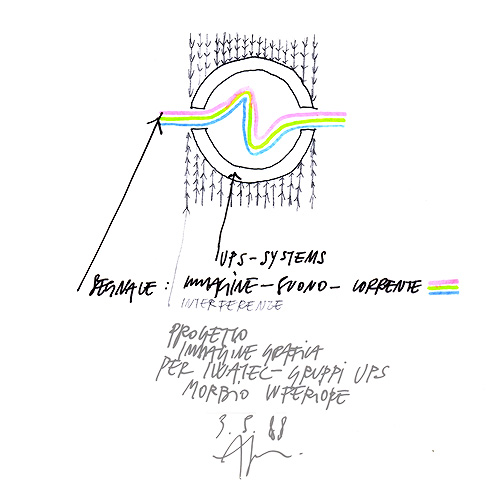 UPS-SYSTEMS
SEGNALE: IMMAGINE-SUONO-CORRENTE
INTERFERENZE
PROGETTO
IMMAGINE GRAFICA
PER INVATEC-GRUPPI UPS
MORBIO INFERIORE
3.5.88